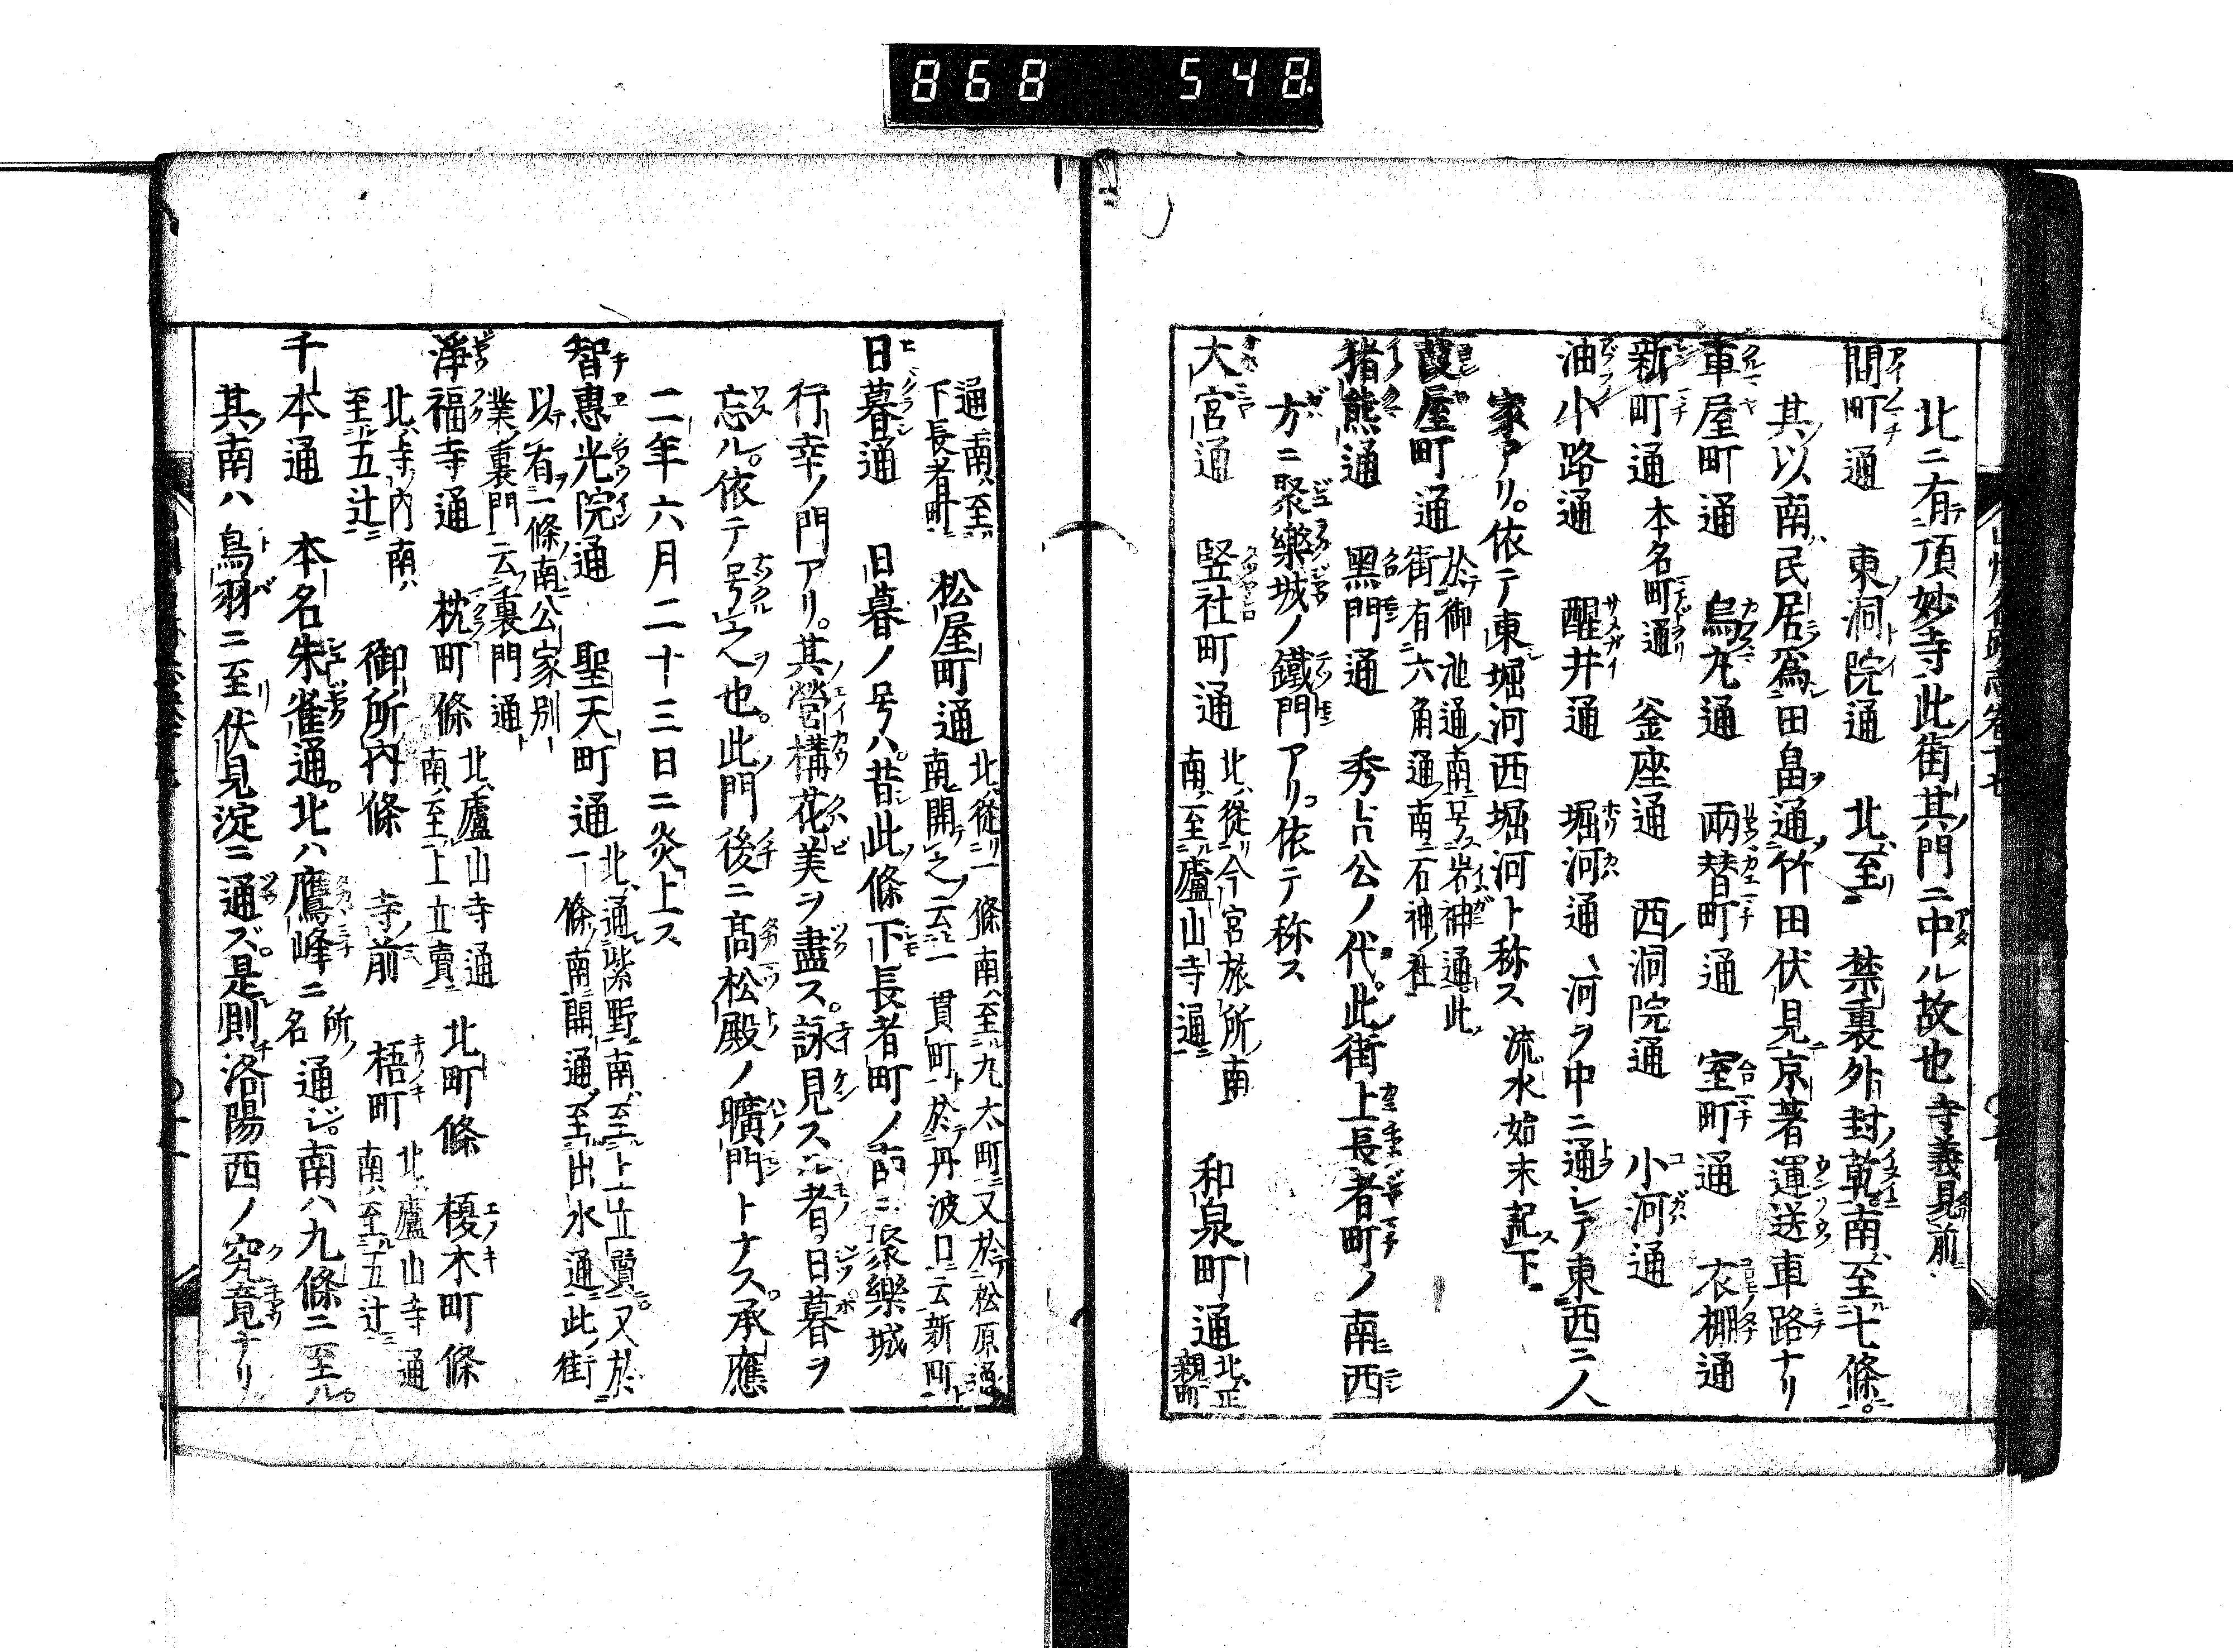 868 548
北ニ有頂妙寺此街其門ニ中ル故也寺義見前
間町通 東洞院通 北至 禁裏外封乾南至七條
其以南民居為田畠通竹田伏見京著運送車路ナリ
車屋町通 烏丸通 兩替町通 室町通 衣棚通
新町通本名町通 釜座通 西洞院通 小河通
油小路通 醒井通 堀河通、河ヲ中ニ通シテ東西ニ人
家アリ。依テ東堀河西堀河ト称ス 流水始末記下
葭屋町通 於御池通南号岩神通此
街有六角通南石神社
猪熊通 黑門通 秀吉公ノ代。此街上長者町ノ南西
方ニ聚樂城ノ鐵門アリ。依テ称ス
大宮通 竪社町通 北從今宮旅所南
南至廬山寺通 和泉町通 北正
親町
通南至
下長者町 松屋町通 北從一條南至九太町又於松原通
南開之云一貫町於丹波口云新町
日暮通 日暮ノ号ハ。昔此條下長者町ノ南ニ聚樂城
行幸ノ門アリ。其營構花美ヲ盡ス。詠見スル者日暮ヲ
忘ル。依テ号之也。此門後ニ髙松殿ノ曠門トナス。承應
二年六月二十三日ニ炎上ス
智惠光院通 聖天町通 北通紫野南至上立賣又於
一條南開通至出水通此街
以有一條南公家別
業裏門云裏門通
淨福寺通 枕町條 北廬山寺通
南至上立賣 北町條 榎木町條
北寺内南
至五辻 御所内條 寺前 梧町 北廬山寺通
南至五辻
千本通 本名朱雀通。北ハ鷹峰ニ名所通ジ。南ハ九條ニ至ル。
其南ハ鳥羽ニ至リ伏見淀ニ通ズ。是則洛陽西ノ究竟ナリ